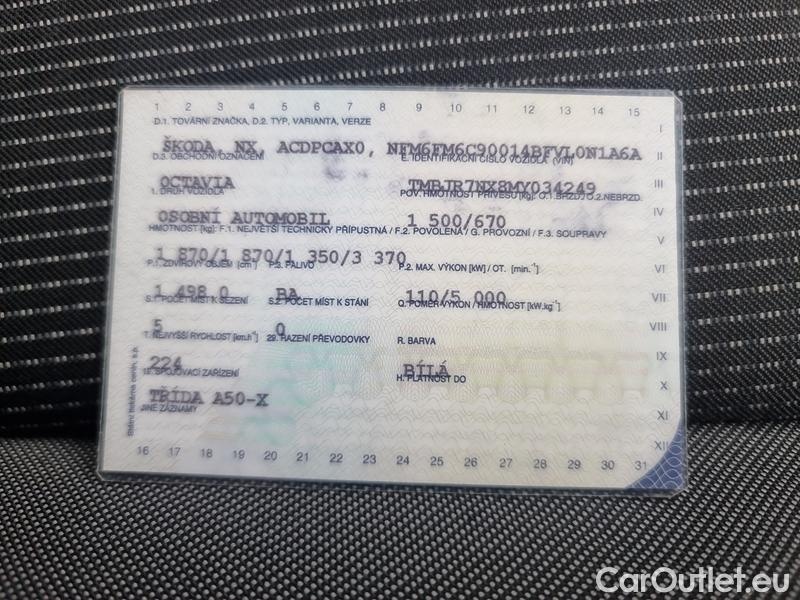 1 2 3 4 5 6 7 8 9 10 11 12 13 14 15
D.1. TOVÁRNÍ ZNAČKA, D.2. TYP, VARIANTA, VERZE
I
ŠKODA, NX, ACDPCAX0, NFM6FM6C90014BFVL0N1A6A
II
D.3. OBCHODNÍ OZNAČENÍ E. IDENTIFIKAČNÍ ČÍSLO VOZIDLA (VIN)
OCTAVIA TMBJR7NX8MY034249
III
1. DRUH VOZIDLA POV. HMOTNOST PŘÍVĚSU [kg]: O.1. BRZD./O.2. NEBRZD.
OSOBNÍ AUTOMOBIL 1 500/670
IV
HMOTNOST [kg]: F.1. NEJVĚTŠÍ TECHNICKY PŘÍPUSTNÁ / F.2. POVOLENÁ / G. PROVOZNÍ / F.3. SOUPRAVY
V
1 870/1 870/1 350/3 370
P.1. ZDVIHOVÝ OBJEM [cm³] P.3. PALIVO P.2. MAX. VÝKON [kW] / OT. [min.⁻¹]
VI
1 498.0 BA 110/5 000
VII
S.1. POČET MÍST K SEZENÍ S.2. POČET MÍST K STÁNÍ Q. POMĚR VÝKON / HMOTNOST [kW.kg⁻¹]
5 0
VIII
T. NEJVYŠŠÍ RYCHLOST [km.h⁻¹] 29. ŘAZENÍ PŘEVODOVKY R. BARVA
IX
224 BÍLÁ
18. SPOJOVACÍ ZAŘÍZENÍ H. PLATNOST DO
X
TŘÍDA A50-X
JINÉ ZÁZNAMY
XI
XII
16 17 18 19 20 21 22 23 24 25 26 27 28 29 30 31
Státní tiskárna cenin, s.p.
CarOutlet.eu